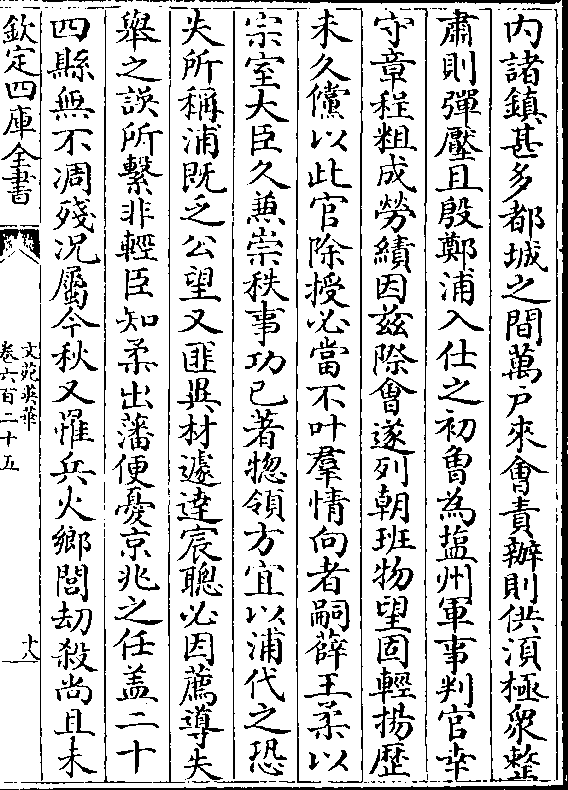 内諸鎮甚多都城之間萬戸來會責辦則供湏極衆整
肅則彈壓且殷鄭浦入仕之初曾為塩州軍事判官幸
守章程粗成勞績因兹除㑹遂列朝班物望固輕揚歴
未久儻以此官除授必當不叶羣情向者嗣薛王柔以
宗室大臣久兼崇秩事功已著惣領方宜以浦代之恐
失所稱浦既乏公望又匪異材遽達宸聰必因薦導失
舉之誤所繫非輕臣知柔出藩便憂京兆之任盖二十
四縣無不凋殘况屬今秋又罹兵火鄉閭刧殺尚且未
欽定四庫全書
文苑英華
卷六百二十五
十八